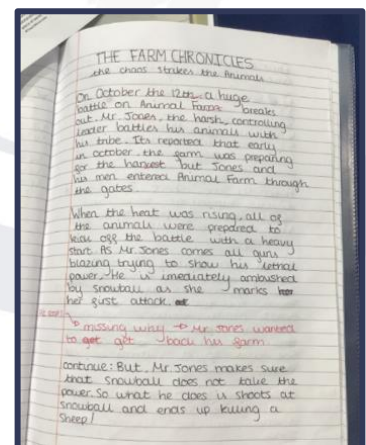 THE FARM CHRONICLES
the chaos strikes the Animals
On October the 12th a huge
battle on Animal Farm breaks
out. Mr. Jones, the harsh, controlling
leader battles his animals with
his tribe. Its reported that early
in october the farm was preparing
for the harvest but Jones and
his men entered Animal Farm through
the gates.
When the heat was rising, all of
the animals were prepared to
kick off the battle with a heavy
start. As Mr. Jones comes all guns
blazing trying to show his lethal
power. He is imediately ambushed
by snowball as she marks
her first attack.
missing why Mr Jones wanted
to get back his farm
continue: But, Mr. Jones makes sure
that snowball does not take the
power. So what he does is shoots at
snowball and ends up killing a
sheep!